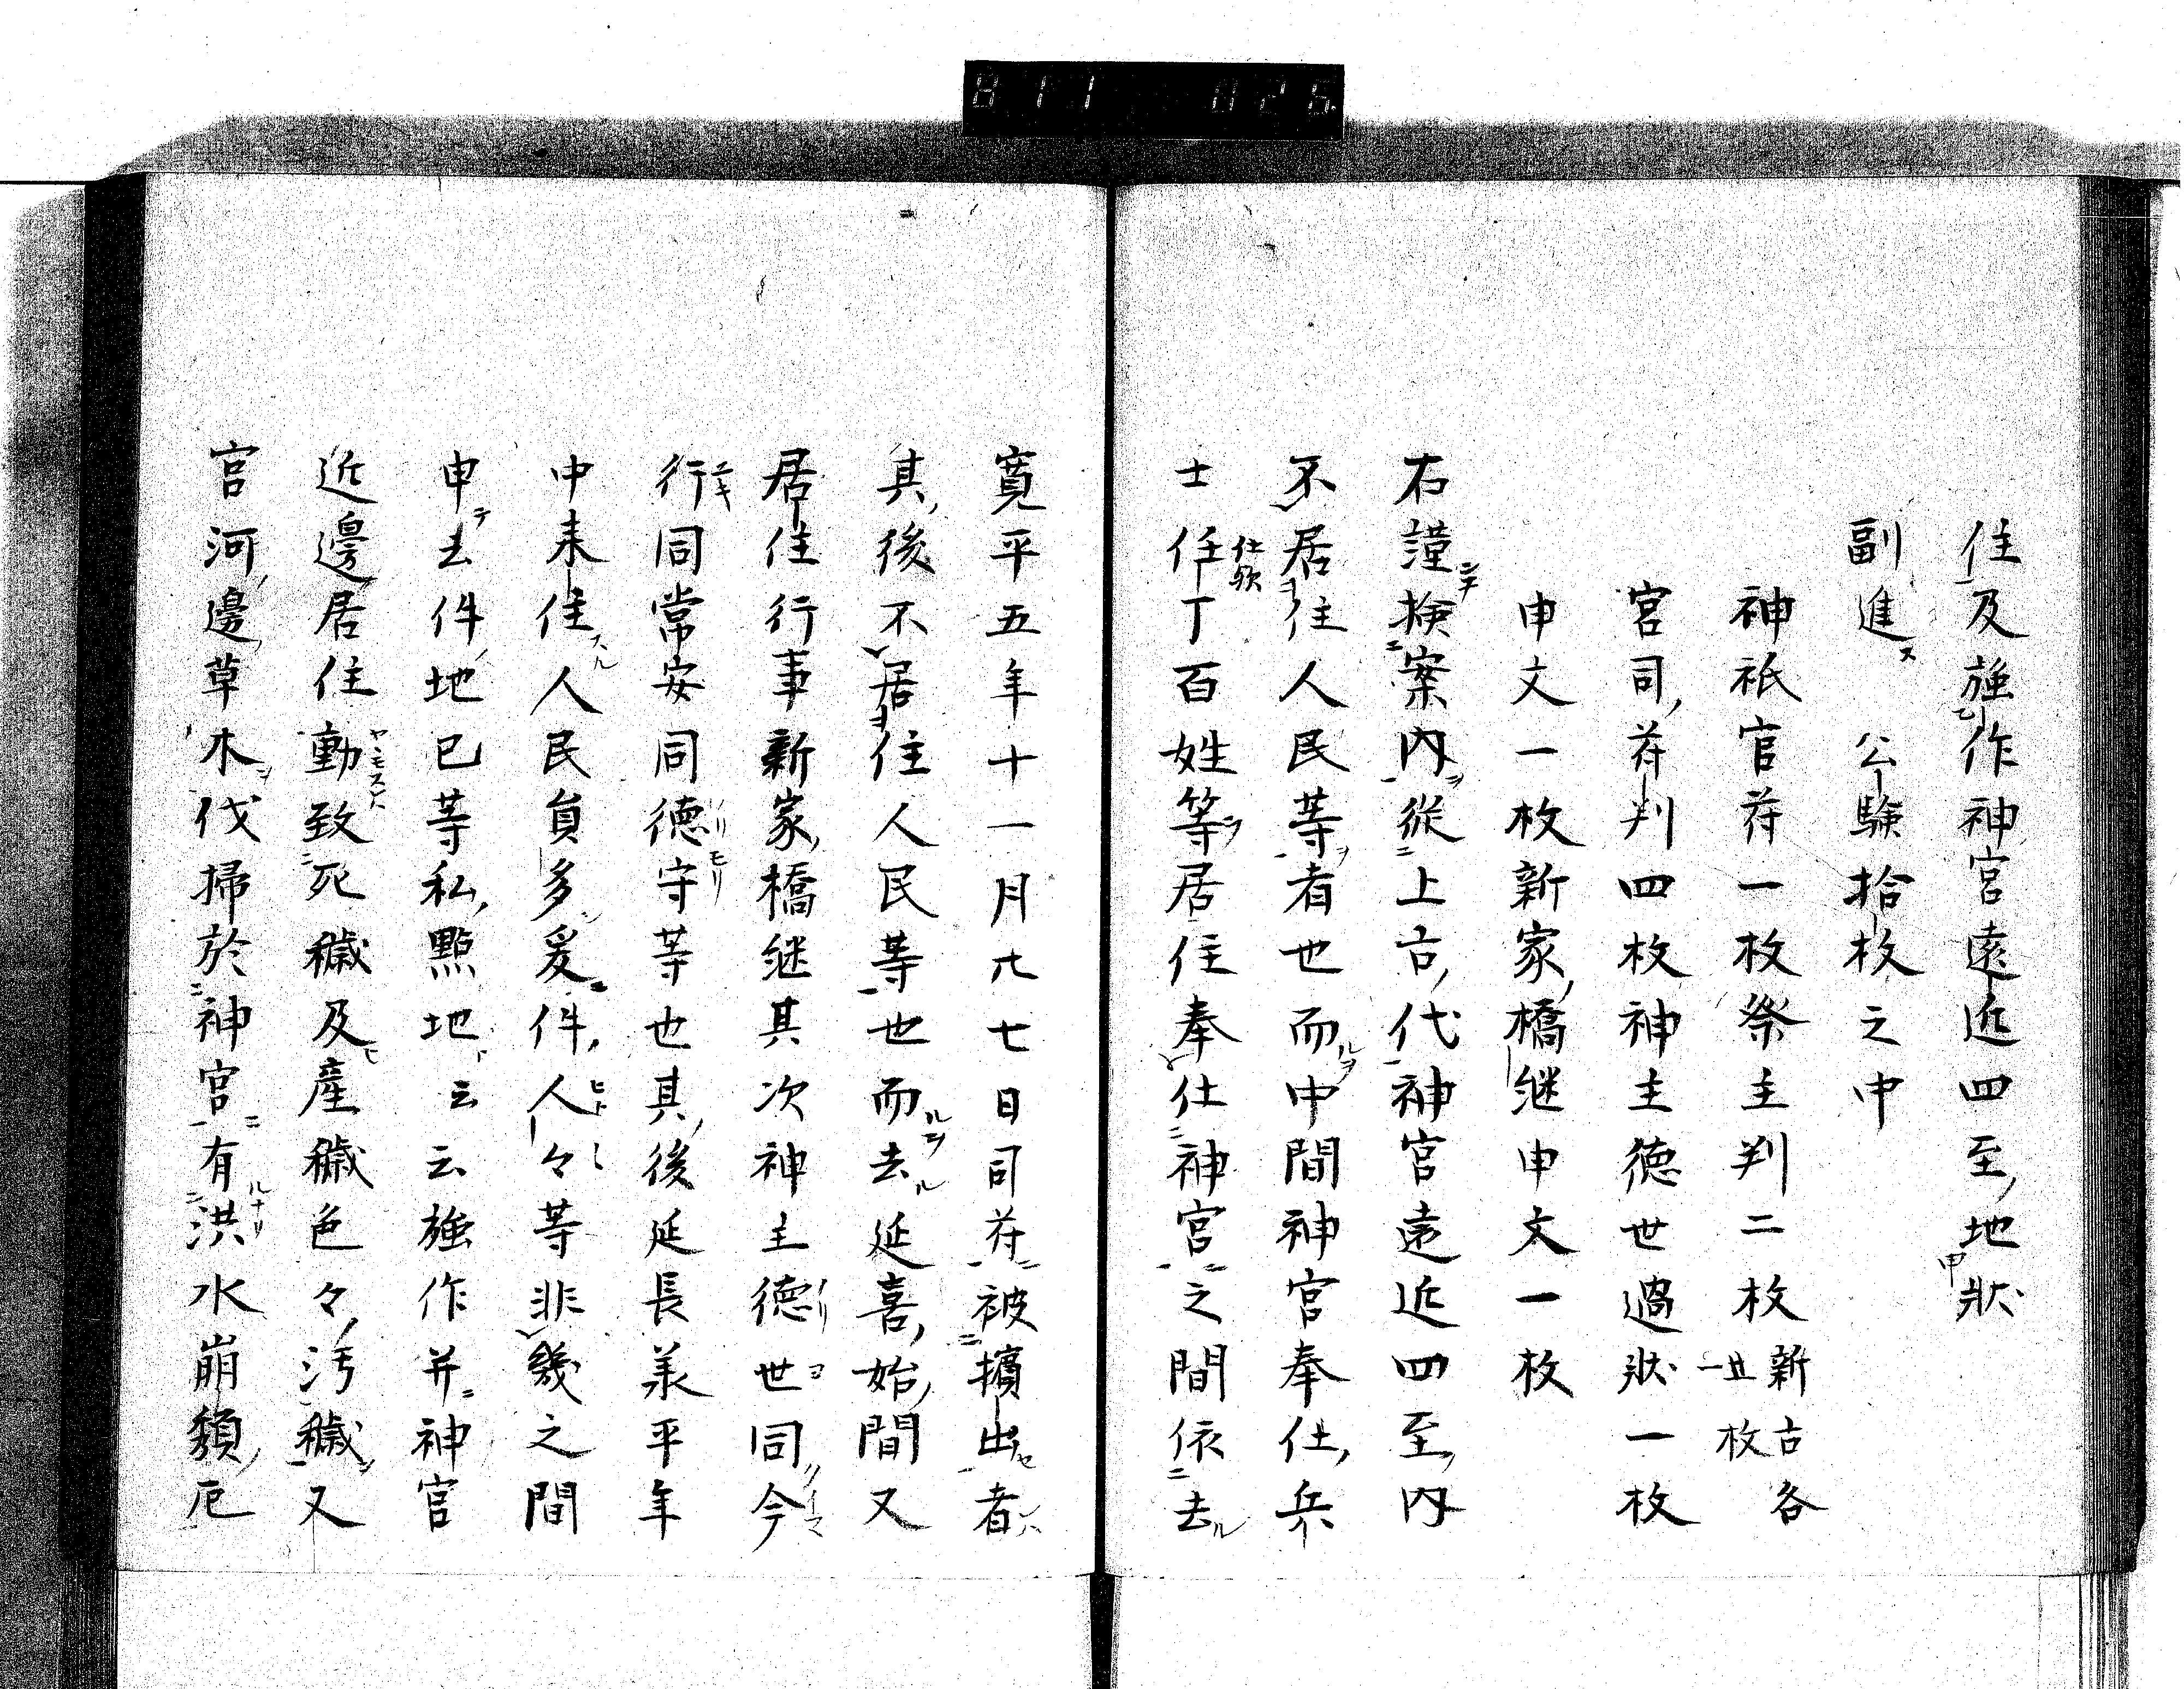 住及強作神宮遠近四至地状
副進 公験拾枚之中
神祇官苻一枚祭主判二枚新古各一枚
宮司苻判四枚神主徳世過状一枚
申文一枚新家橋継申文一枚
右謹検案内従上古代神宮遠近四至内
不居住人民等者也而中間神宮奉仕兵
士任丁百姓等居住奉仕神宮之間依去
寛平五年十一月廿七日司苻被擯出者
其後不居住人民等也而去延喜始間又
居住行事新家橋継其次神主徳世同今
行同常安同徳守等也其後延長羕平年
中来住人民員多爰件人々等非幾之間
申去件地已等私點地云云強作并神官
近邊居住動致死穢及産穢色々汚穢又
宮河邊草木伐掃於神宮有洪水崩頽厄